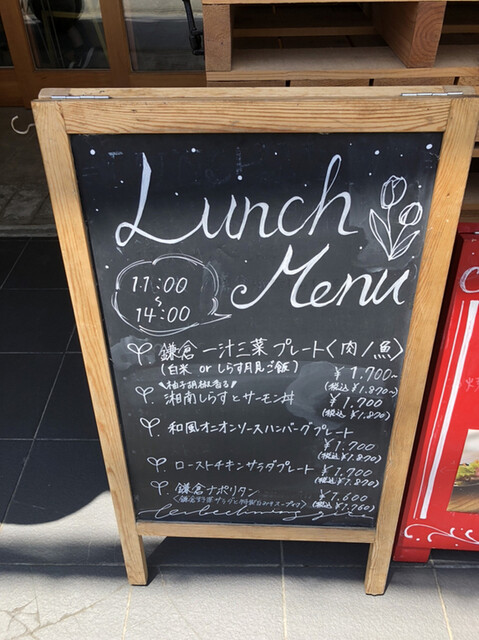 Lunch
Menu
11:00
~
14:00
鎌倉 一汁三菜プレート〈肉/魚〉
(白米 or しらす月見ご飯) ¥1.700~
(税込¥1.870~)
柚子胡椒香る
湘南しらすとサーモン丼 ¥1.700
(税込¥1.870)
和風オニオンソースハンバーグプレート
¥1.700
(税込¥1.870)
ローストチキンサラダプレート ¥1.700
(税込¥1.870)
鎌倉ナポリタン ¥1.600
(税込¥1.760)